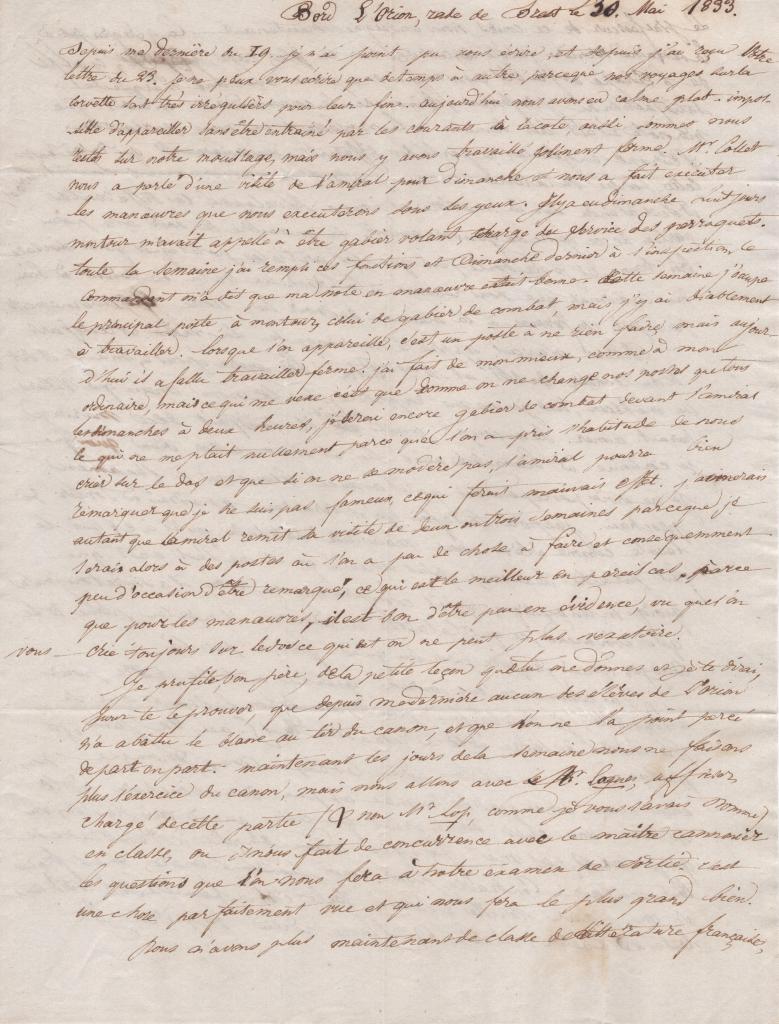 Bord L'Orion, rade de Brest le 30. Mai 1833.
Depuis ma dernière du 19. je n'ai point pu vous écrire, et depuis j'ai reçu votre
lettre du 23. je ne peux vous écrire que de temps à autre parceque nos voyages sur la
corvette sont très irréguliers pour leur fin. aujourd'hui nous avons eu calme plat. impos-
sible d'appareiller sans être entrainé par les courants à la cote, aussi sommes nous
restés sur notre mouillage, mais nous y avons travaillé joliment ferme. Mr. Collet
nous a parlé d'une visite de l'amiral pour dimanche et nous a fait exécuter
les manœuvres que nous executerons sous ses yeux. Il y a eu dimanche huit jours
montour m'avait appellé à être gabier volant, chargé du service des perroquets.
toute la semaine j'ai rempli ces fonctions et Dimanche dernier à l'inspection, le
Commandant m'a dit que ma note en manœuvre était bonne. Cette semaine j'occupe
le principal poste, à montour, celui de gabier de combat, mais j'y ai diablement
à travailler. lorsque l'on appareille, c'est un poste à ne rien faire, mais aujour-
d'hui il a fallu travailler ferme. j'ai fait de mon mieux, comme à mon
ordinaire, mais ce qui me vexe c'est que comme on ne change nos postes que tous
les dimanches à deux heures, je serai encore gabier de combat devant l'amiral
ce qui ne me plait nullement parce que l'on a pris l'habitude de nous
crier sur le dos et que si on ne se modère pas, l'amiral pourra bien
remarquer que je ne suis pas fameux, ce qui ferait mauvais effet. j'aimerais
autant que l'amiral remit sa visite de deux ou trois semaines parceque je
serais alors à des postes où l'on a peu de chose à faire et consequemment
peu d'occasion d'être remarqué, ce qui est le meilleur en pareil cas, parce
que pour les manœuvres, il est bon d'être peu en évidence, vu que l'on
vous crie toujours sur le dos ce qui est on ne peut plus vexatoire.
Je profite, bon père, de la petite leçon que tu me donnes et je te dirai,
pour te le prouver que depuis ma dernière aucun des élèves de L'orion
n'a abattu le blanc au tir du canon, et que l'on ne l'a point percé
de part en part. maintenant les jours de la semaine nous ne faisons
plus l'exercice du canon, mais nous allons avec Mr. officier
chargé de cette partie (& non Mr Lop, comme je vous l'avais nommé)
en classe, où il nous fait de concurrence avec le maître cannonier
les questions que l'on nous fera à notre examen de sortie, c'est
une chose parfaitement vue et qui nous fera le plus grand bien.
Nous n'avons plus maintenant de classe de littérature française,